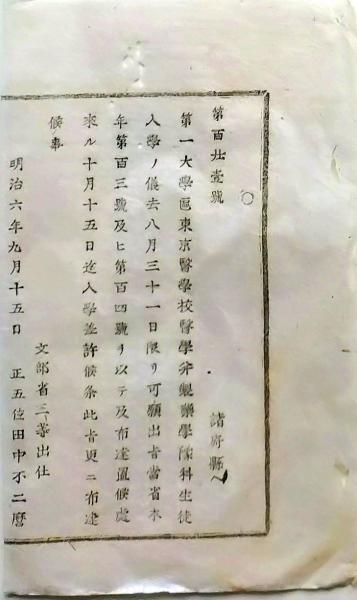 第百廿壹號
諸府縣へ
第一大學區東京醫學校醫學并製藥學豫科生徒
入學ノ儀去八月三十一日限リ可願出旨當省本
年第百三號及ヒ第百四號ヲ以テ及布達置候處
來ル十月十五日迄入學差許候条此旨更ニ布達
候事
明治六年九月十五日
文部省三等出仕
正五位田中不二麿